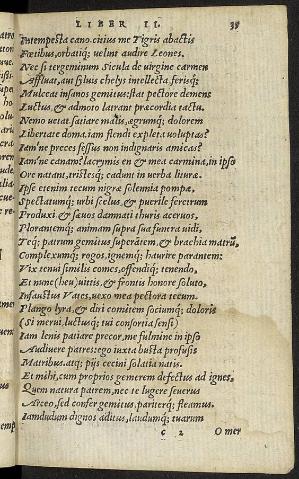 LIBER II. 35
Intempesta cano. citius me Tigris abactis
Fœtibus, orbatiq; velint audire Leones,
Nec si tergeminum Sicula de virgine carmen
Affluat, aut syluis chelys intellecta ferisq;
Mulceat insanos gemitus: stat pectore demens
Luctus, & admoto latrant præcordia tactu.
Nemo vetat satiare malis, ægrumq; dolorem
Libertate doma. iam flendi expleta voluptas?
Iam'ne preces fessus non indignaris amicas?
Iam'ne canam? lacrymis en & mea carmina, in ipso
Ore natant, tristesq; cadunt in verba lituræ.
Ipse etenim tecum nigræ solemnia pompæ,
Spectatumq; vrbi scelus, & puerile feretrum
Produxi & sæuos damnati thuris aceruos,
Plorantemq; animam supra sua funera vidi,
Teq; patrum gemitus superātem, & brachia matrū,
Complexumq; rogos, ignemq; haurire parantem:
Vix tenui similis comes, offendiq; tenendo,
Et nunc (heu) vittis, & frontis honore soluto,
Infaustus Vates, vexo mea pectora tecum.
Plango lyra, & diri comitem sociumq; doloris
(Si merui, luctusq; tui consortia sensi)
Iam lenis patiare precor, me fulmine in ipso
Audiuere patres: ego iuxta busta profusis
Matribus. atq; pijs cecini solatia natis.
Et mihi, cum proprios gemerem defectus ad ignes,
Quem natura patrem, nec te lugere seuerus
Arceo, sed confer gemitus, pariterq; fleamus.
Iamdudum dignos aditus, laudumq; tuarum
C 2 O mer